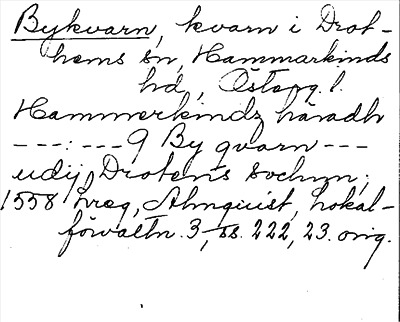 Bykvarn, kvarn i Drot-
hems sn, Hammarkinds
hd, Östergl.
Hammerkindz häradh
---:---9 By qvarn---
udij Drotens sochnn;
1558 hreg, Almquist, Lokal-
förvaltn. 3, ss. 222, 23. orig.